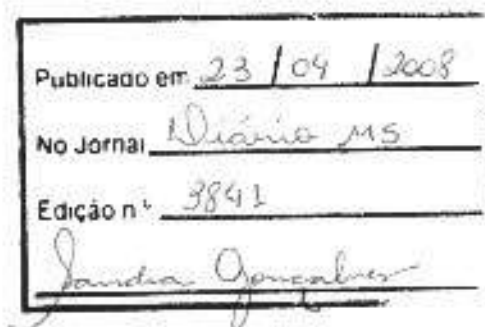 Publicado em 23/04/2008
No Jornal Diário MS
Edição nº 3841
Sandra Gonçalves